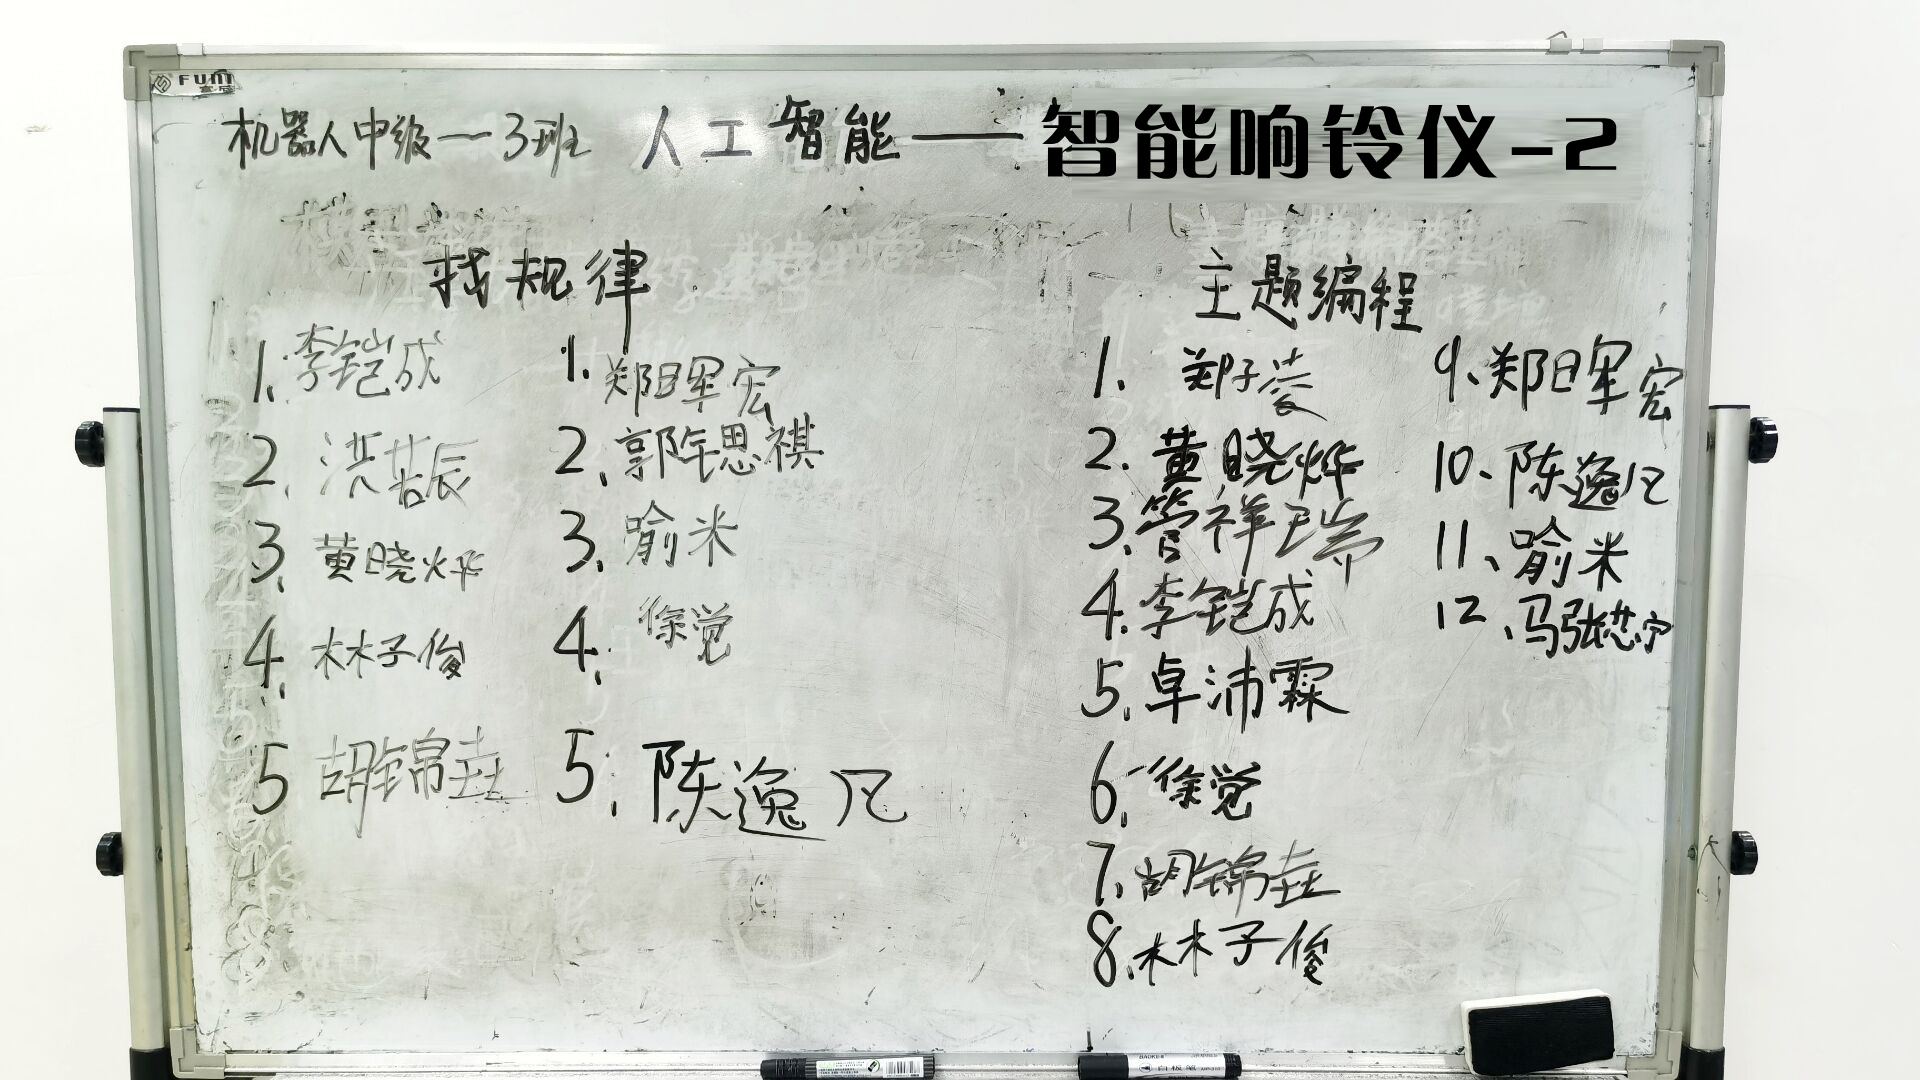 FUNI
机器人中级—3班 人工智能——智能响铃仪-2
找规律
1.李铠成
2.洪若辰
3.黄晓烨
4.林子俊
5 胡锦垚
1.郑日军宏
2.郭钰思祺
3.喻米
4.徐觉
5.陈逸凡
主题编程
1.郑子菱
2.黄晓烨
3.管祥瑞
4.李铠成
5.卓沛霖
6.徐觉
7.胡锦垚
8.林子俊
9.郑日军宏
10.陈逸凡
11.喻米
12.马张悲宁